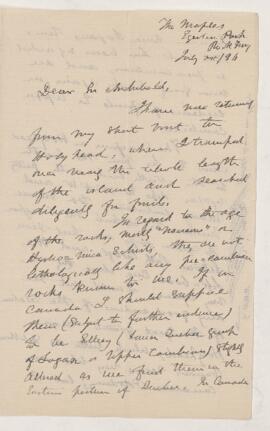 The Maples
Egerton Park
July 22/96
Dear Sir Archibald,
I have now returned
from my short visit to
Holyhead, where I tramped
over nearly the whole length
of the island and searched
diligently for fossils.
In regard to the age
of the rocks, mostly "nacreous" or
Hydro Mica Schists, they are not
lithologically like any pre-cambrian
rocks known to me. If in
Canada I should suppose
them (subject to further evidence)
to be Sillery (Lower Quebec group
of Logan or Upper Cambrian) slightly
altered as we find them in the
Eastern portion of Quebec. In Canada